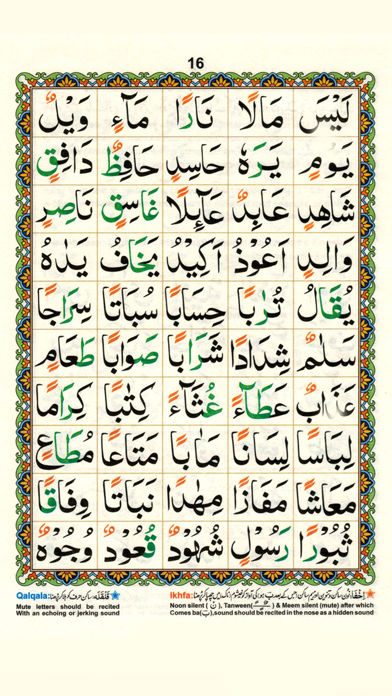 16
لَيْسَ مَالًا نَارًا مَآءٍ وَيْلٌ
يَوْمٍ يَرَهٗ حَاسِدٍ حَافِظٌ دَافِقٍ
شَاهِدٍ عَابِدٌ عَآئِلًا غَاسِقٍ نَاصِرٍ
وَالِدٍ اَعُوْذُ اَكِيْدُ يَخَافُ يَدٰهُ
يُقَالُ تُرٰبًا حِسَابًا سُبَاتًا سِرَاجًا
سَلٰمٌ شِدَادًا شَرَابًا صَوَابًا طَعَامٍ
عَذَابٌ عَطَآءً غُثَآءً كِتٰبًا كِرَامًا
لِبَاسًا لِسَانًا مَاٰبًا مَتَاعًا مُطَاعٍ
مَعَاشًا مَفَازًا مِهٰدًا نَبَاتًا وِفَاقًا
ثُبُوْرًا رَسُوْلٍ شُهُوْدٌ قُعُوْدٌ وُجُوْهٌ
Qalqala:
Mute letters should be recited
With an echoing or jerking sound
Ikhfa:
Noon silent (نْ), Tanween( ) & Meem silent (mute) after which
Comes ba(ب),sound should be recited in the nose as a hidden sound